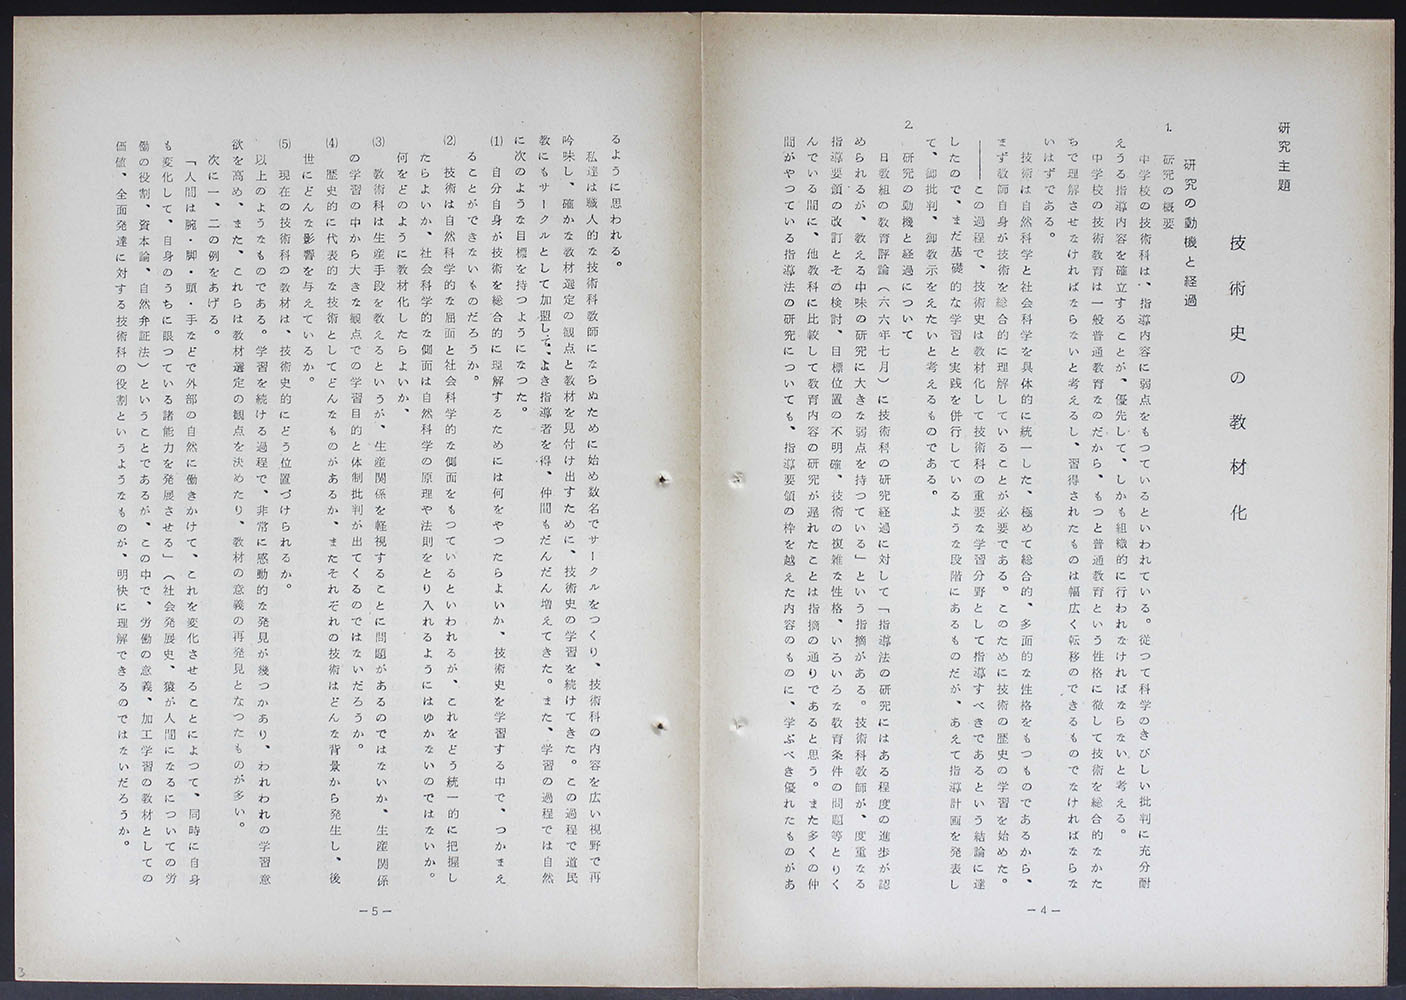 研究主題
技術史の教材化
研究の動機と経過
1. 研究の概要
中学校の技術科は、指導内容に弱点をもつているといわれている。従つて科学のきびしい批判に充分耐
えうる指導内容を確立することが、優先して、しかも組織的に行われなければならないと考える。
中学校の技術教育は一般普通教育なのだから、もつと普通教育という性格に徹して技術を総合的なかた
ちで理解させなければならないと考えるし、習得されたものは幅広く転移のできるものでなければならな
いはずである。
技術は自然科学と社会科学を具体的に統一した、極めて総合的、多面的な性格をもつものであるから、
まず教師自身が技術を総合的に理解していることが必要である。このために技術の歴史の学習を始めた。
――この過程で、技術史は教材化して技術科の重要な学習分野として指導すべきであるという結論に達
したので、まだ基礎的な学習と実践を併行しているような段階にあるものだが、あえて指導計画を発表し
て、御批判、御教示をえたいと考えるものである。
2. 研究の動機と経過について
日教組の教育評論（六六年七月）に技術科の研究経過に対して「指導法の研究にはある程度の進歩が認
められるが、教える中味の研究に大きな弱点を持つている」という指摘がある。技術科教師が、度重なる
指導要領の改訂とその検討、目標位置の不明確、技術の複雑な性格、いろいろな教育条件の問題等とりく
んでいる間に、他教科に比較して教育内容の研究が遅れたことは指摘の通りであると思う。また多くの仲
間がやつている指導法の研究についても、指導要領の枠を越えた内容のものに、学ぶべき優れたものがあ
－4－
るように思われる。
私達は職人的な技術科教師にならぬために始め数名でサークルをつくり、技術科の内容を広い視野で再
吟味し、確かな教材選定の観点と教材を見付け出すために、技術史の学習を続けてきた。この過程で道民
教にもサークルとして加盟して、よき指導者を得、仲間もだんだん増えてきた。また、学習の過程では自然
に次のような目標を持つようになつた。
(1) 自分自身が技術を総合的に理解するためには何をやつたらよいか、技術史を学習する中で、つかまえ
ることができないものだろうか。
(2) 技術は自然科学的な屈面と社会科学的な側面をもつているといわれるが、これをどう統一的に把握し
たらよいか、社会科学的な側面は自然科学の原理や法則をとり入れるようにはゆかないのではないか。
何をどのように教材化したらよいか、
(3) 教術科は生産手段を教えるというが、生産関係を軽視することに問題があるのではないか、生産関係
の学習の中から大きな観点での学習目的と体制批判が出てくるのではないだろうか。
(4) 歴史的に代表的な技術としてどんなものがあるか、またそれぞれの技術はどんな背景から発生し、後
世にどんな影響を与えているか。
(5) 現在の技術科の教材は、技術史的にどう位置づけられるか。
以上のようなものである。学習を続ける過程で、非常に感動的な発見が幾つかあり、われわれの学習意
欲を高め、また、これらは教材選定の観点を決めたり、教材の意義の再発見となつたものが多い。
次に一、二の例をあげる。
「人間は腕・脚・頭・手などで外部の自然に働きかけて、これを変化させることによつて、同時に自身
も変化して、自身のうちに眠つている諸能力を発展させる」（社会発展史、猿が人間になるについての労
働の役割、資本論、自然弁証法）ということであるが、この中で、労働の意義、加工学習の教材としての
価値、全面発達に対する技術科の役割というようなものが、明快に理解できるのではないだろうか。
－5－
3